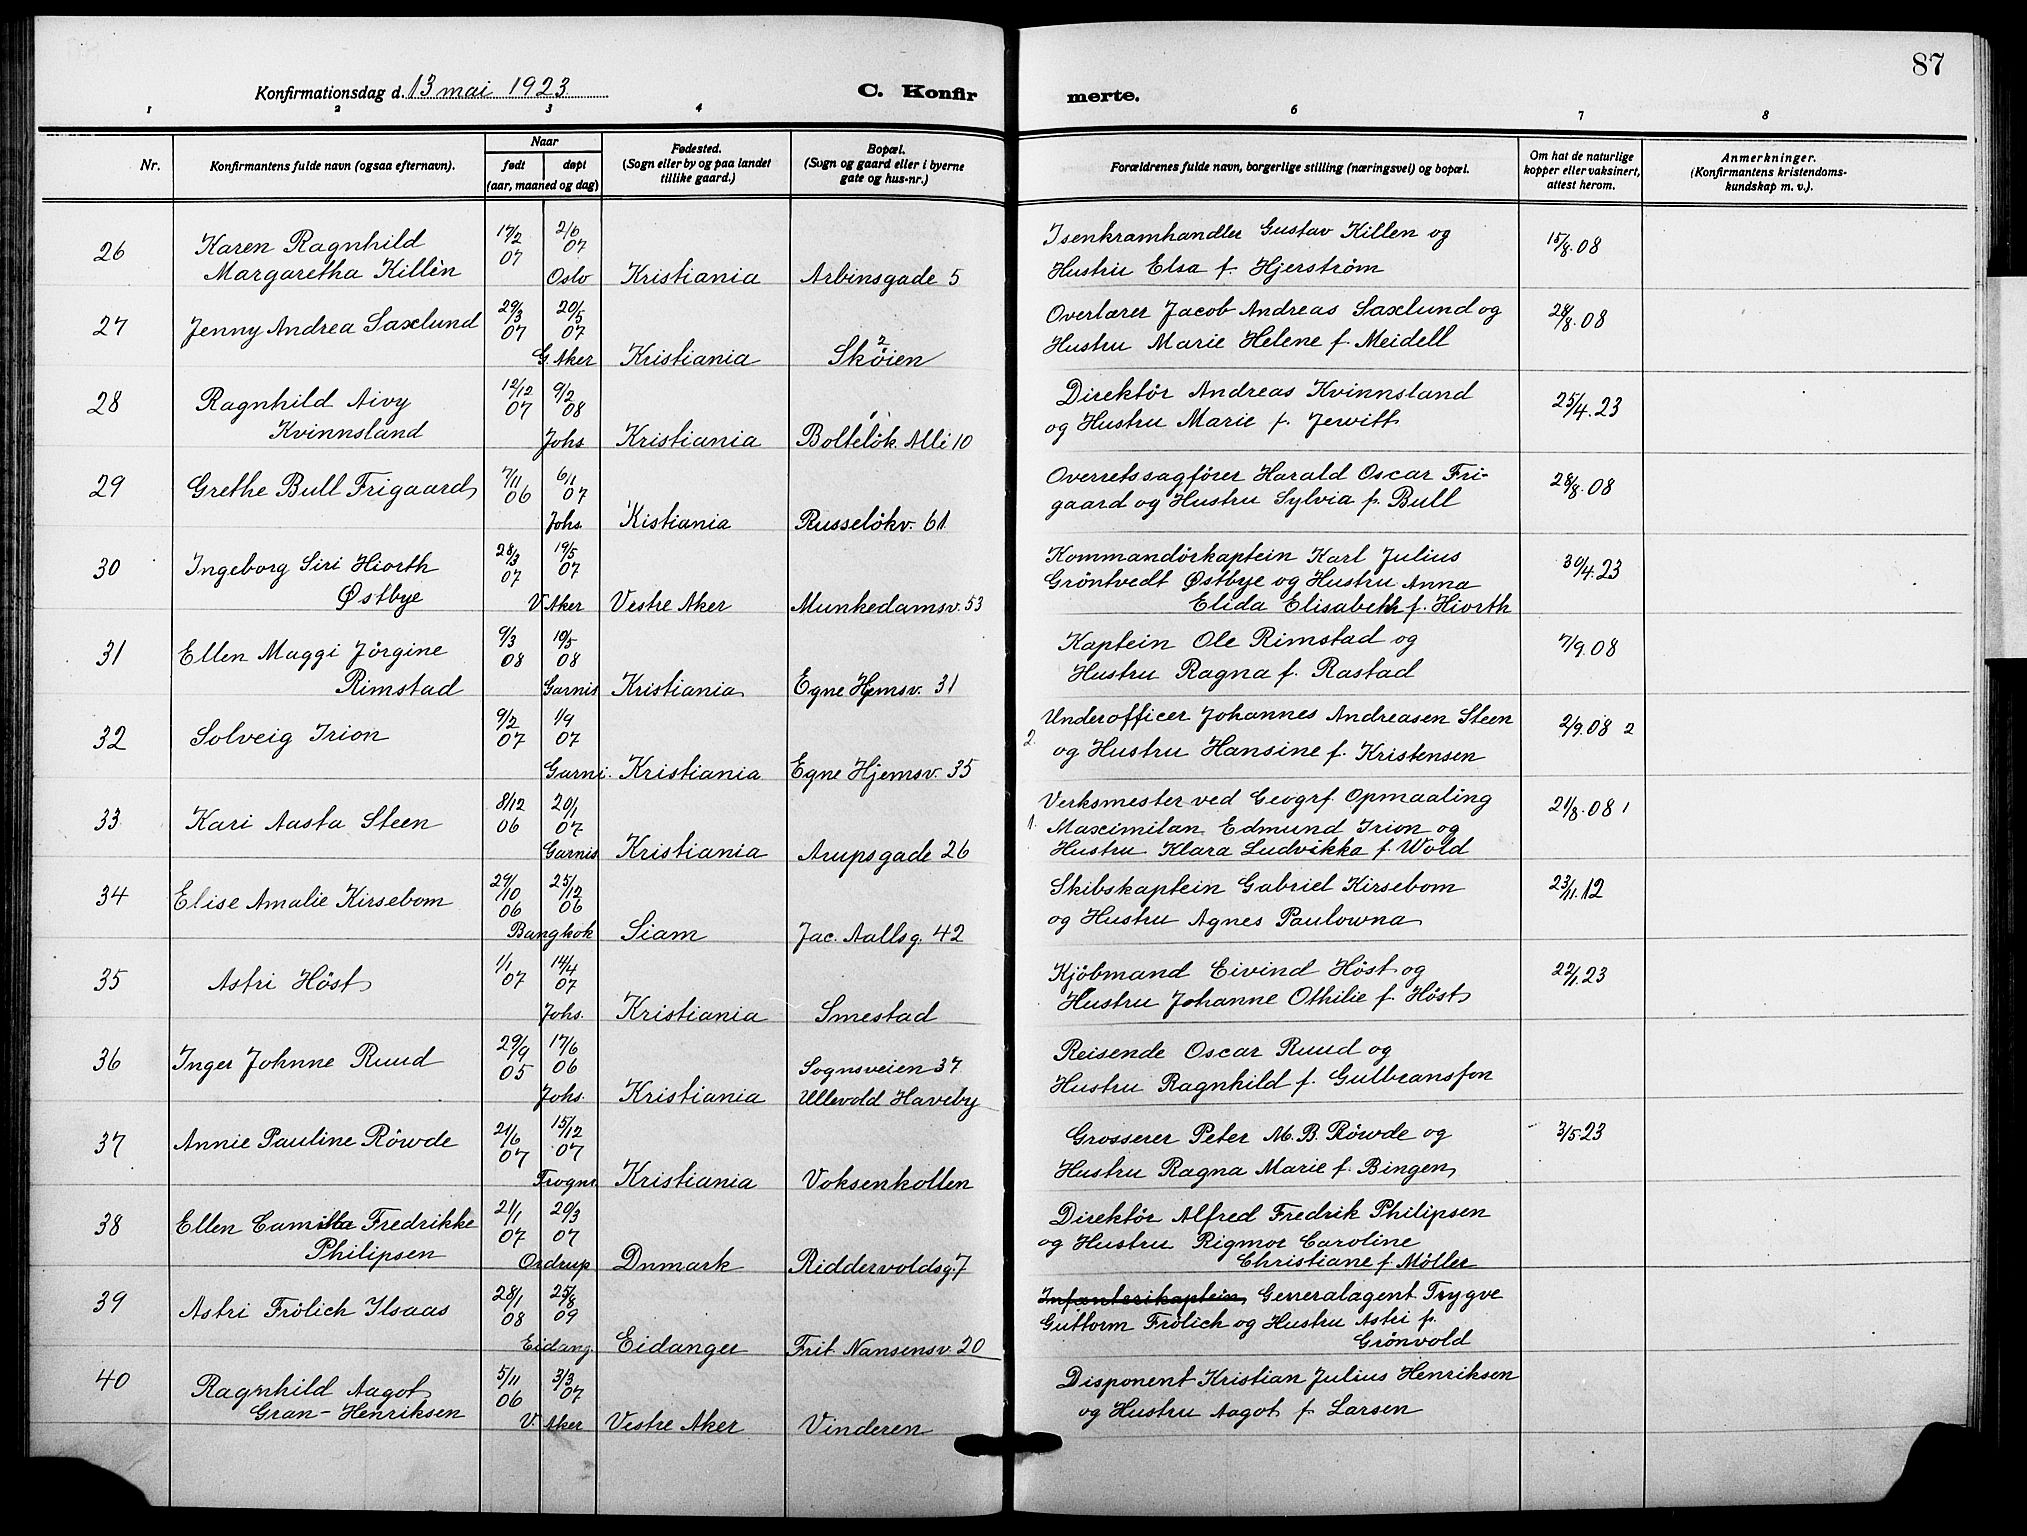 87
Konfirmationsdag d. 13 mai 1923 C. Konfirmerte.
1 2 3 4 5 6 7 8
Nr. Konfirmantens fulde navn (ogsaa efternavn). Naar født døpt (aar, maaned og dag) Fødested. (Sogn eller by og paa landet tillike gaard.) Bopæl. (Sogn og gaard eller i byerne gate og hus-nr.) Forældrenes fulde navn, borgerlige stilling (næringsvei) og bopæl. Om hat de naturlige kopper eller vaksinert, attest herom. Anmerkninger. (Konfirmantens kristendomskundskap m. v.).
26 Karen Ragnhild 17/2 07 2/6 07 Isenkramhandler Gustav Killen og 15/8.08
Margaretha Killén Oslo Kristiania Arbinsgade 5 Hustru Elsa f. Hjerstrøm
27 Jenny Andrea Saxlund 29/3 07 20/5 07 Overlærer Jacob Andreas Saxlund og 28/8.08
G. Aker Kristiania Skøien Hustru Marie Helene f. Meidell
28 Ragnhild Aivy 12/12 07 9/2 08 Direktør Andreas Kvinnsland 25/4.23
Kvinnsland Johs Kristiania Bolteløk Alli 10 og Hustru Marie f. Jewitt
29 Grethe Bull Frigaard 7/11 06 6/1 07 Overretssagfører Harald Oscar Fri- 28/8.08
Johs. Kistiania Russeløkv. 61 gaard og Hustru Sylvia f. Bull
30 Ingeborg Siri Hiorth 28/3 07 19/5 07 Kommandörkaptein Karl Julius 30/4.23
Østbye Gröntvedt Østbye og Hustru Anna
V. Aker Vestre Aker Munkedamsv. 53 Elida Elisabeth f. Hiorth
31 Ellen Maggi Jörgine 9/3 08 10/5 08 Kaptein Ole Rimstad og 7/9.08
Rimstad Garnis Kristiania Egne Hjemsv. 31 Hustru Ragna f. Rastad
32 Solveig Irion 9/2 07 1/9 07 2. Underofficer Johannes Andreasen Steen 2/9.08 2
Garni. Kristiania Egne Hjemsv. 35 og Hustru Hansine f. Kristensen
33 Kari Aasta Steen 8/12 06 20/1 07 Verksmester ved Geogrf. Opmaaling 21/8.08 1
1. Maximilan Edmund Irion og
Garnis Kristiania Arupsgade 26 Hustru Klara Ludvikka f. Wold
34 Elise Amalie Kirsebom 29/10 06 25/12 06 Skibskaptein Gabriel Kirsebom 23/11.12
Bangkok Siam Jac. Aallsg. 42 og Hustru Agnes Paulowna
35 Astri Höst 1/1 07 14/4 07 Kjöbmand Eivind Höst og 22/1.23
Johs. Kristiania Smestad Hustru Johanne Othilie f. Höst
36 Inger Johnne Ruud 29/9 05 17/6 06 Sognsveien 37 Reisende Oscar Ruud og
Johs. Kristiania Ullevold Haveby Hustru Ragnhild f. Gulbransson
37 Annie Pauline Röwde 21/6 07 15/12 07 Grosserer Peter M. B. Röwde og 3/5.23
Frogn. Kristiania Voksenkollen Hustru Ragna Marie f. Bingen
38 Ellen Camilla Fredrikke 21/1 07 29/3 07 Direktör Alfred Fredrik Philipsen
Philipsen og Hustru Rigmor Caroline
Ordrup Dnmark Riddervoldsg. 7 Christiane f. Möller
39 Astri Frölich Ilsaas 28/1 08 25/8 09 Infanterikaptein Generalagent Trygve
Guttorm Frölich og Hustru Astri f.
Eidang. Eidanger Frit. Nansensv. 20 Grönvold
40 Ragnhild Aagot 5/11 06 3/3 07 Disponent Kristian Julius Henriksen
Gran-Henriksen V. Aker Vestre Aker Vinderen og Hustru Aagot f. Larsen